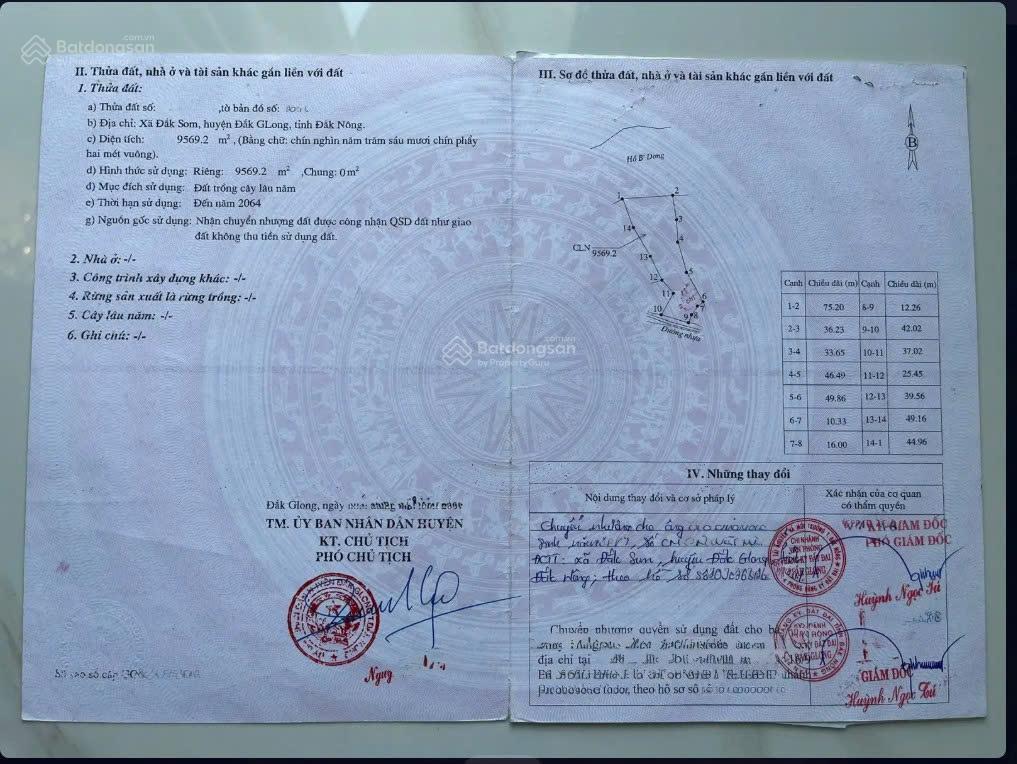 Batdongsan
.com.vn
II. Thửa đất, nhà ở và tài sản khác gắn liền với đất
1. Thửa đất:
a) Thửa đất số: ,tờ bản đồ số:
b) Địa chỉ: Xã Đắk Som, huyện Đắk GLong, tỉnh Đắk Nông.
c) Diện tích: 9569.2 m², (Bằng chữ: chín nghìn năm trăm sáu mươi chín phẩy
hai mét vuông).
d) Hình thức sử dụng: Riêng: 9569.2 m², Chung: 0 m²
đ) Mục đích sử dụng: Đất trồng cây lâu năm
e) Thời hạn sử dụng: Đến năm 2064
g) Nguồn gốc sử dụng: Nhận chuyển nhượng đất được công nhận QSD đất như giao
đất không thu tiền sử dụng đất.
2. Nhà ở: -/-
3. Công trình xây dựng khác: -/-
4. Rừng sản xuất là rừng trồng: -/-
5. Cây lâu năm: -/-
6. Ghi chú: -/-
Đắk Glong, ngày
TM. ỦY BAN NHÂN DÂN HUYỆN
KT. CHỦ TỊCH
PHÓ CHỦ TỊCH
III. Sơ đồ thửa đất, nhà ở và tài sản khác gắn liền với đất
B
Hồ B' Dong
1
2
3
4
5
6
7
8
9
10
11
12
13
14
CLN
9569.2
Đường nhựa
Batdongsan
.com.vn
by PropertyGuru
Cạnh Chiều dài (m) Cạnh Chiều dài (m)
1-2 75.20 8-9 12.26
2-3 36.23 9-10 42.02
3-4 33.65 10-11 37.02
4-5 46.49 11-12 25.45
5-6 49.86 12-13 39.56
6-7 10.33 13-14 49.16
7-8 16.00 14-1 44.96
IV. Những thay đổi
Nội dung thay đổi và cơ sở pháp lý
Xác nhận của cơ quan
có thẩm quyền
Chuyển nhượng cho ông
ĐCTT: xã Đắk Som, huyện Đắk Glong
Đắk Nông; theo hồ sơ số
GIÁM ĐỐC
PHÓ GIÁM ĐỐC
Huỳnh Ngọc Tú
Chuyển nhượng quyền sử dụng đất cho bà
địa chỉ tại
theo hồ sơ số
GIÁM ĐỐC
Huỳnh Ngọc Tú